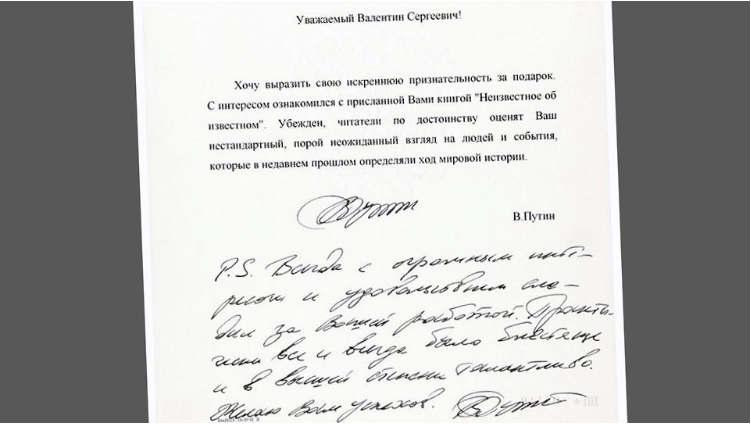 Уважаемый Валентин Сергеевич!
Хочу выразить свою искреннюю признательность за подарок.
С интересом ознакомился с присланной Вами книгой "Неизвестное об
известном". Убежден, читатели по достоинству оценят Ваш
нестандартный, порой неожиданный взгляд на людей и события,
которые в недавнем прошлом определяли ход мировой истории.
В.Путин
P.S. Всегда с огромным инте-
ресом и удовольствием сле-
дил за Вашей работой. Практи-
чески все и всегда было блестяще
и в высшей степени талантливо.
Желаю Вам успехов.